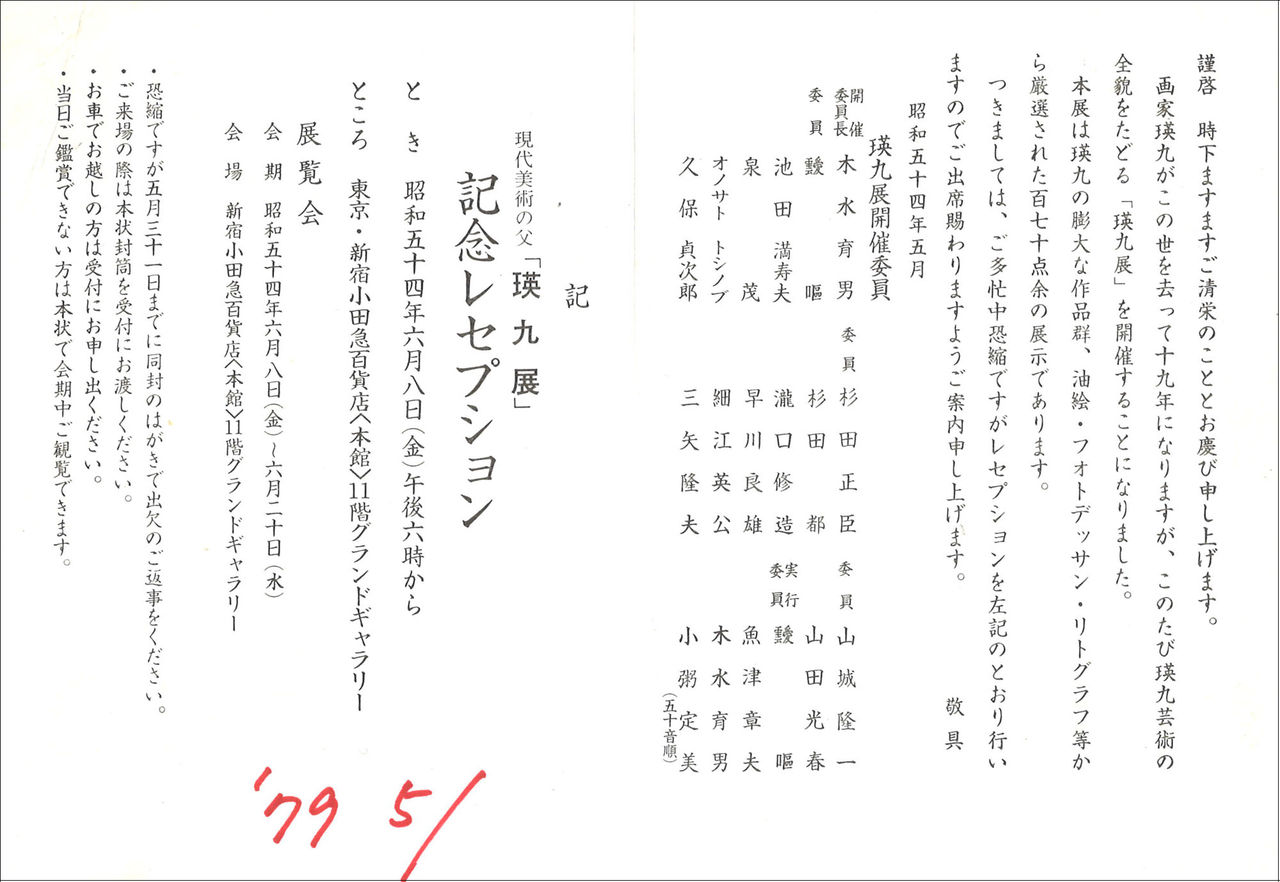 謹啓　時下ますますご清栄のこととお慶び申し上げます。
画家瑛九がこの世を去って十九年になりますが、このたび瑛九芸術の
全貌をたどる「瑛九展」を開催することになりました。
本展は瑛九の膨大な作品群、油絵・フォトデッサン・リトグラフ等か
ら厳選された百七十点余の展示であります。
つきましては、ご多忙中恐縮ですがレセプションを左記のとおり行い
ますのでご出席賜わりますようご案内申し上げます。　敬具
昭和五十四年五月
瑛九展開催委員
開催委員長　木水育男
委員　靉嘔
池田満寿夫
泉茂
オノサトトシノブ
久保貞次郎
委員　杉田正臣
杉田都
瀧口修造
早川良雄
細江英公
三矢隆夫
委員　山城隆一
山田光春
実行委員　靉嘔
魚津章夫
木水育男
小粥定美
（五十音順）
記
現代美術の父「瑛九展」
記念レセプション
とき　昭和五十四年六月八日（金）午後六時から
ところ　東京・新宿小田急百貨店〈本館〉11階グランドギャラリー
展覧会
会期　昭和五十四年六月八日（金）～六月二十日（水）
会場　新宿小田急百貨店〈本館〉11階グランドギャラリー
・恐縮ですが五月三十一日までに同封のはがきで出欠のご返事をください。
・ご来場の際は本状封筒を受付にお渡しください。
・お車でお越しの方は受付にお申し出ください。
・当日ご鑑賞できない方は本状で会期中ご観覧できます。
'79 5/